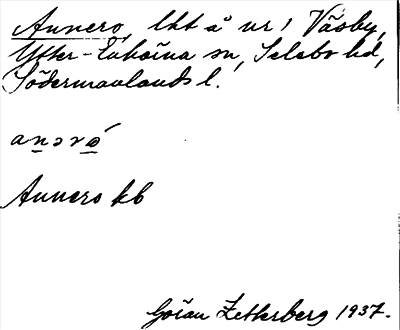 Annero, lht å nr 1 Väsby,
Ytter-Enhörna sn, Selebo hd,
Södermanlands l.
Annero kb
Göran Zetterberg 1937.